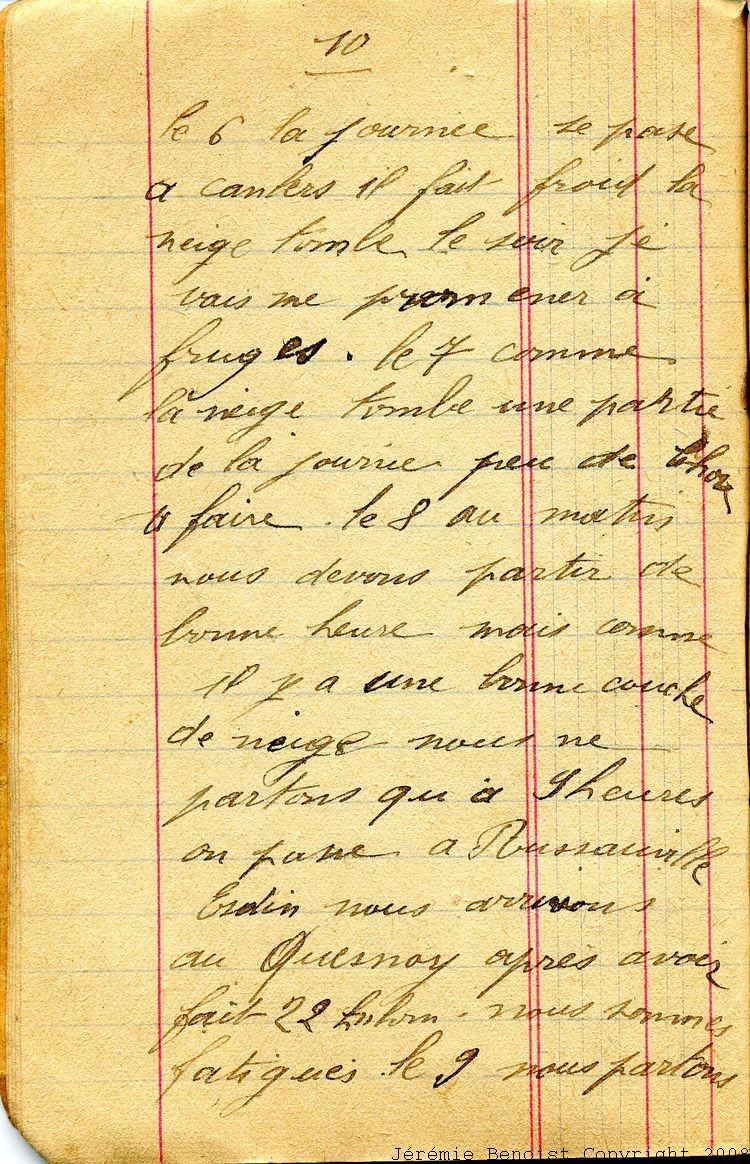 10
le 6 la journee se passe
a canlers il fait froid la
neige tombe le soir je
vais me promener à
fruges. le 7 comme
la neige tombe une partie
de la journee peu de
a faire. le 8 au matin
nous devons partir de
bonne heure mais comme
il y a une bonne couche
de neige nous ne
partons qu'a 9 heures
on passe a Russauville
Esdin nous arrivons
au Quesnoy apres avoir
fait 22 nous sommes
fatigues. le 9 nous partons
Jérémie Benoist Copyright 2008